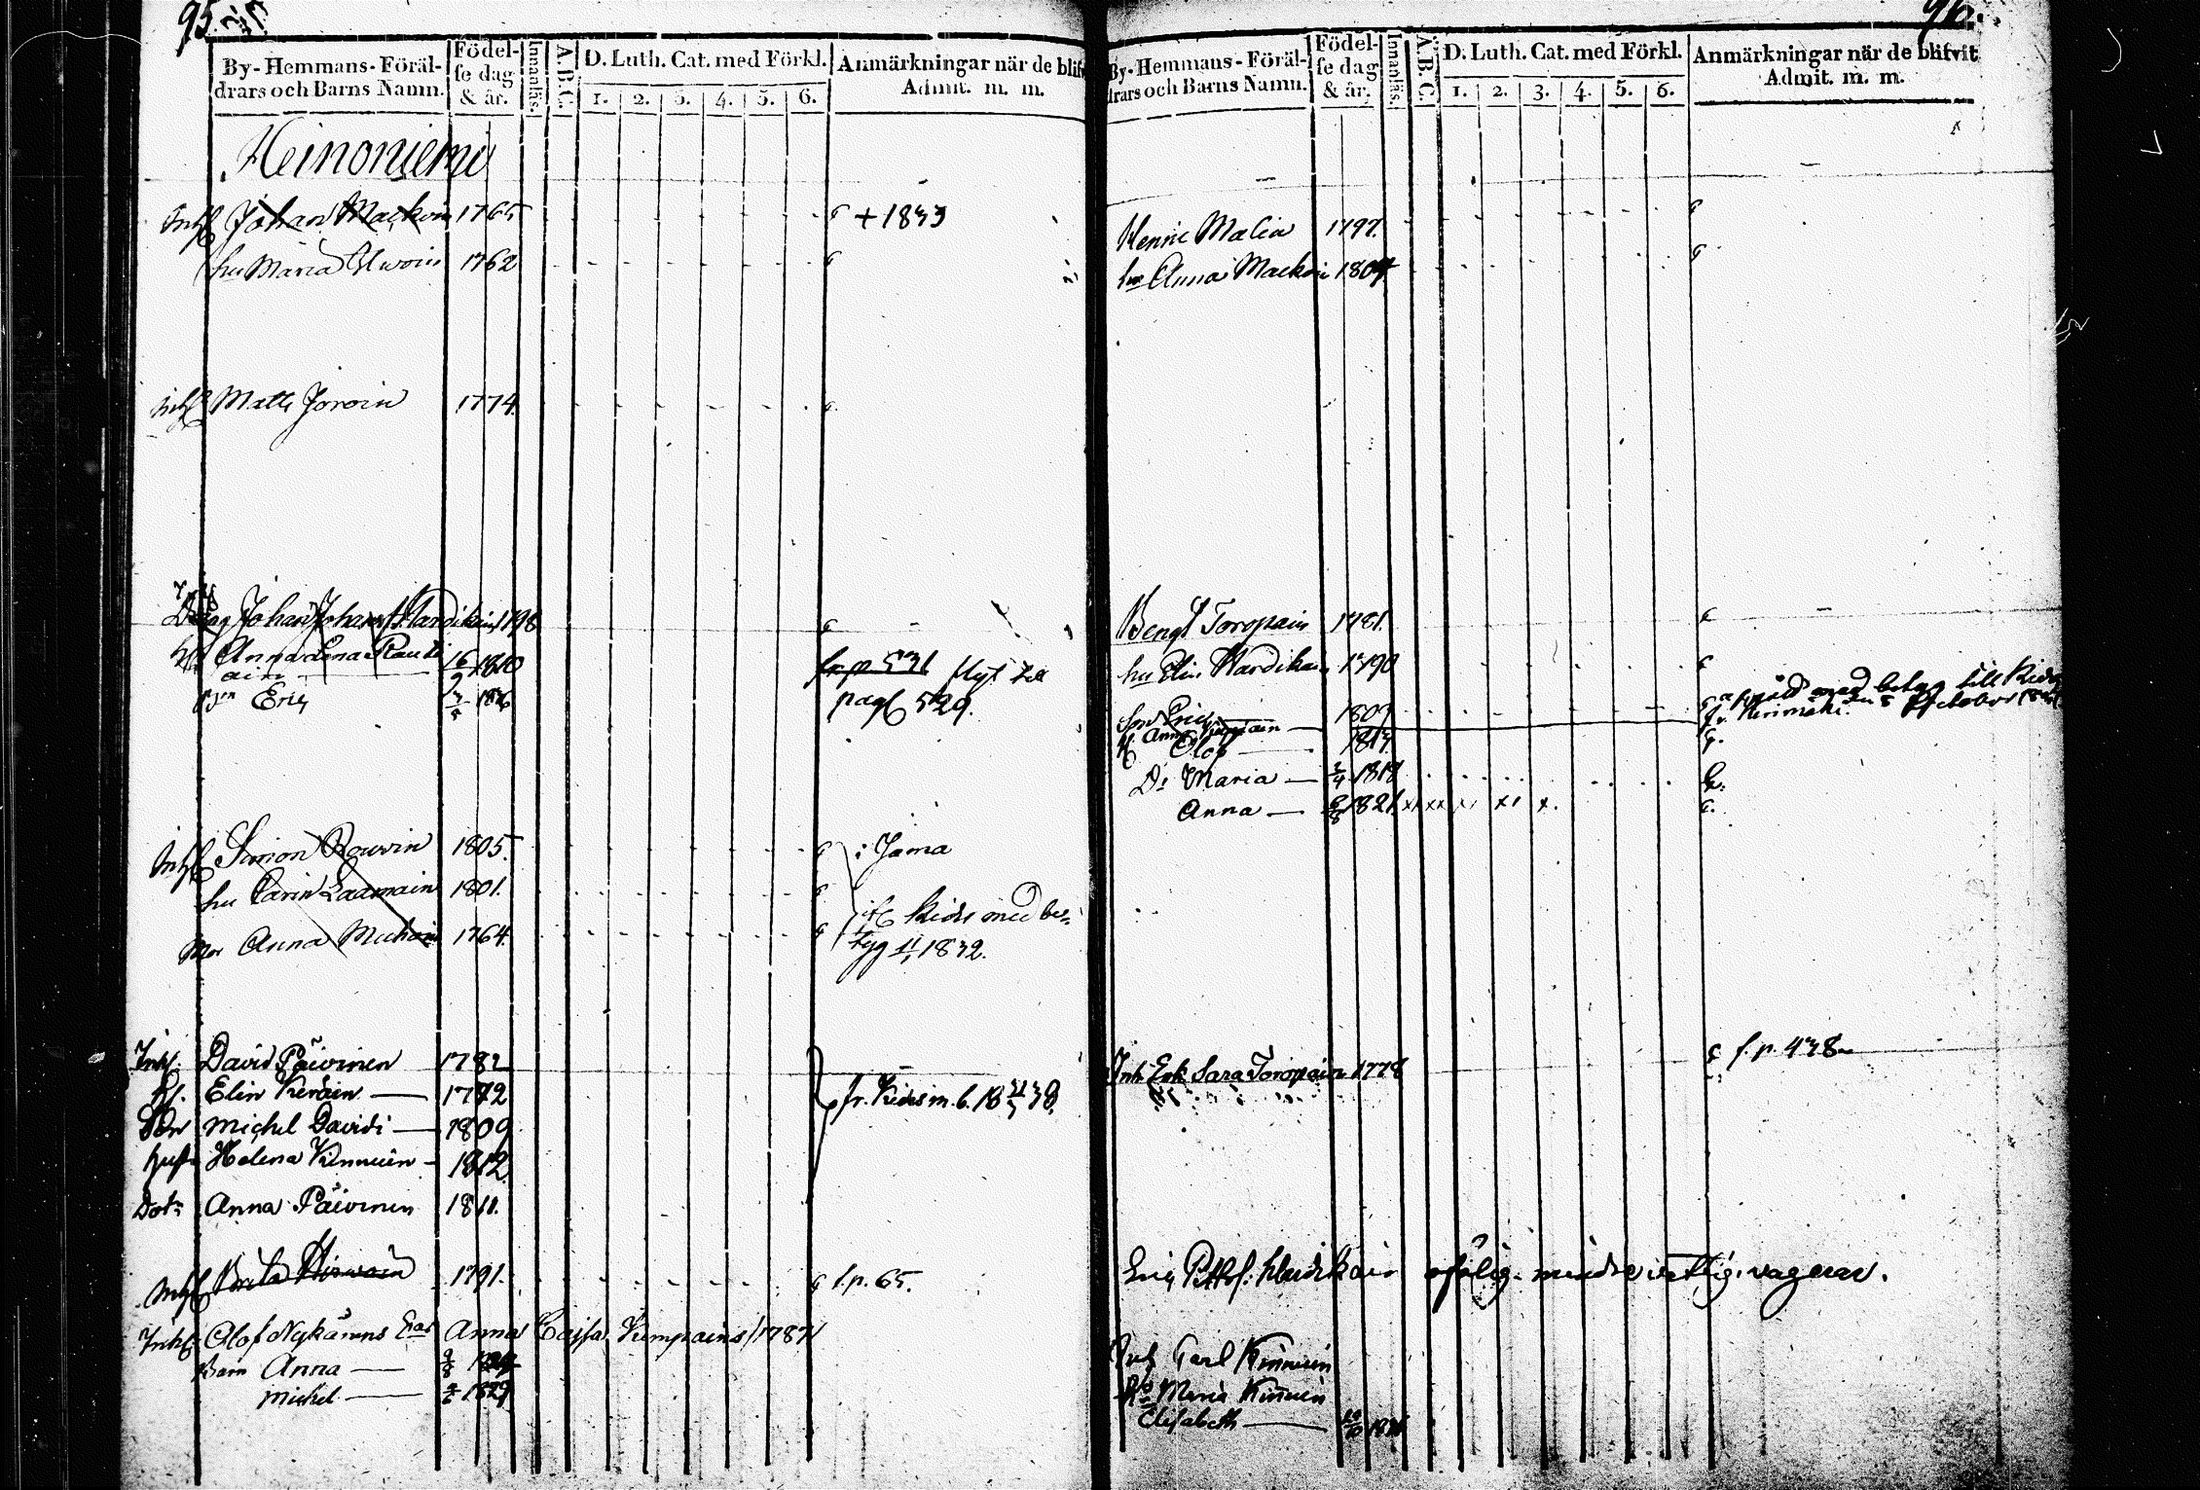 95.
By-Hemmans-Föräl-
drars och Barns Namn.
Födel-
se dag
& år.
Innanläs.
A. B. C.
D. Luth. Cat. med Förkl.
1. 2. 3. 4. 5. 6.
Anmärkningar när de blifv
Admit. m. m.
Heinoniemi
Inh Johan Mackoin 1765 + 1833
hu Maria 1762
Inh Matts Joroin 1774
Johan Johans Hardikain 1798
Anna Lena Rauti
ain 1810 fr p 531 flyt till
Son Eric 1836 pag 529.
Inh Simon Rouvin 1805. i Jama
hu Carin Laamain 1801.
Mor Anna Muhoin 1764. till Kides med be-
tyg 11/1 1832.
Inh. David Päivinen 1782
H. Elin Keräin 1792 fr. Kides m. b. 18 38.
Son Michel Davidi 1809
hust Helena Kinnuin 1812
Dotr Anna Päivinen 1811.
Inh Brita Hirwoin 1791. f.p. 65.
Inh Olof Nykänens Anna Cajsa Kimpains 1787
Barn Anna
Michel 1829
96.
By-Hemmans-Föräl-
drars och Barns Namn.
Födel-
se dag
& år.
Innanläs.
A. B. C.
D. Luth. Cat. med Förkl.
1. 2. 3. 4. 5. 6.
Anmärkningar när de blifvit
Admit. m. m.
Henric Malin 1797.
hu Anna Mackoin 1804
Bengt Toropain 1781.
hu Elin Hardikain 1790
med betyg till Kides
Son Eric 1809 Kerimäki
H. Anna
Olof 1813
Dr Maria 1818
Anna 1821.
Inh Enk Sara Toropain 1778 f. p. 438
Eric Hardikain ofälig mindre vettig. vagerar.
Inh Carl Kinnuin
Maria Kinnuin
Elisabeth